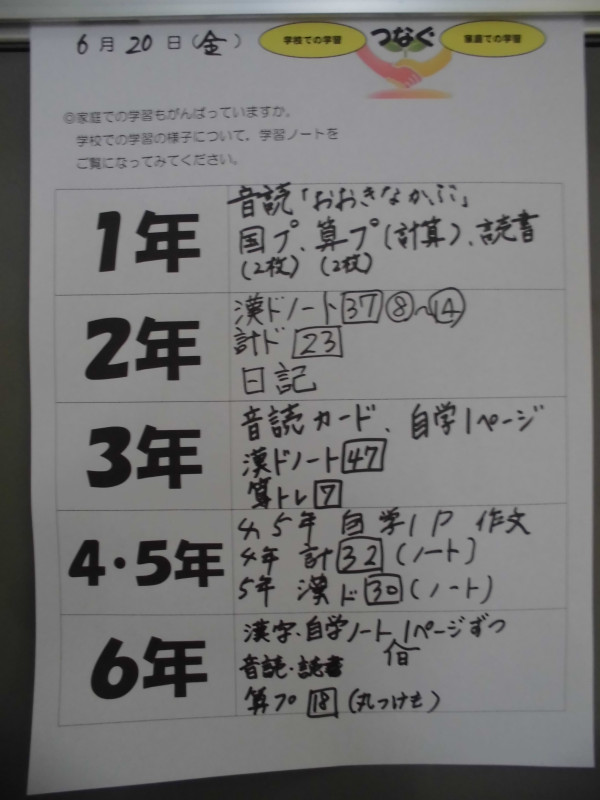 6月20日(金)
学校での学習 つなぐ 家庭での学習
◎家庭での学習もがんばっていますか。
学校での学習の様子について、学習ノートを
ご覧になってみてください。
1年
音読「おおきなかぶ」
国プ、算プ(計算)、読書
(2枚) (2枚)
2年
漢ドノート 37 ⑧〜⑭
計ド 23
日記
3年
音読カード、自学1ページ
漢ドノート 47
算トレ 7
4・5年
4、5年 自学1P 作文
4年 計 32 (ノート)
5年 漢ド 30 (ノート)
6年
漢字・自学ノート 1ページずつ
音読・読書
算プ 18 (丸つけも)